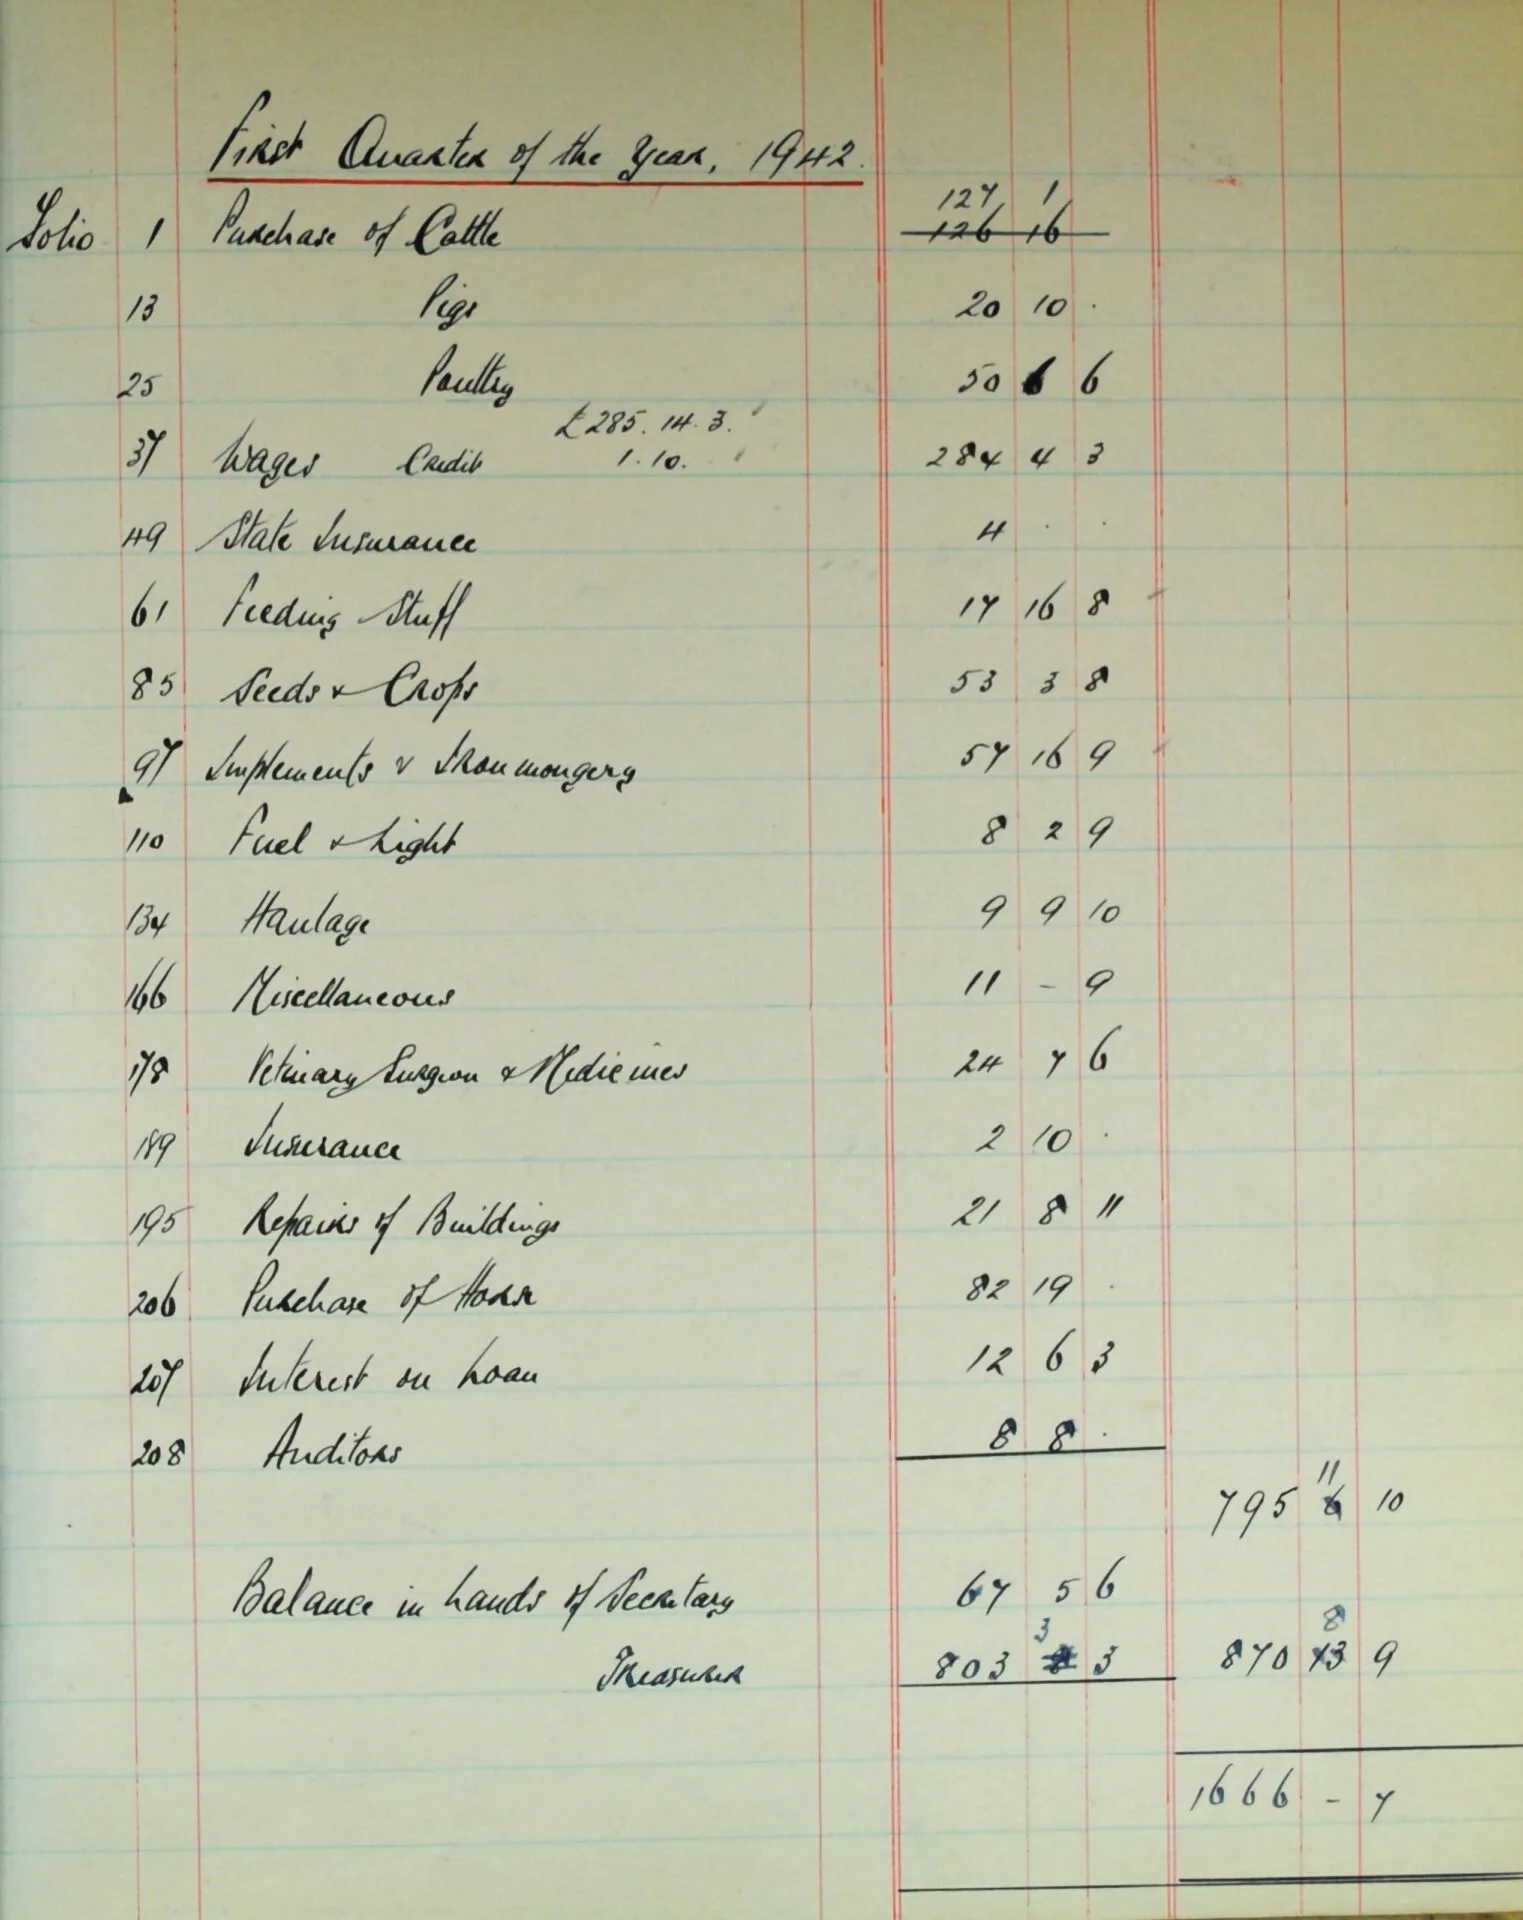 First Quarter of the Year, 1942.
127 1
Folio 1 Purchase of Cattle 126 16
13 Pigs 20 10 .
25 Poultry 50 6 6
£285. 14. 3.
37 Wages Credit 1. 10. 284 4 3
49 State Insurance 4 . .
61 Feeding Stuff 17 16 8
85 Seeds & Crops 53 3 8
97 Implements & Ironmongery 57 16 9
110 Fuel & Light 8 2 9
134 Haulage 9 9 10
166 Miscellaneous 11 - 9
178 Vetinary Surgeon & Medicines 24 7 6
189 Insurance 2 10 .
195 Repairs of Buildings 21 8 11
206 Purchase of Horse 82 19 .
207 Interest on Loan 12 6 3
208 Auditors 8 8 .
11
795 6 10
Balance in hands of Secretary 67 5 6
3 8
Treasurer 803 3 870 13 9
1666 - 7